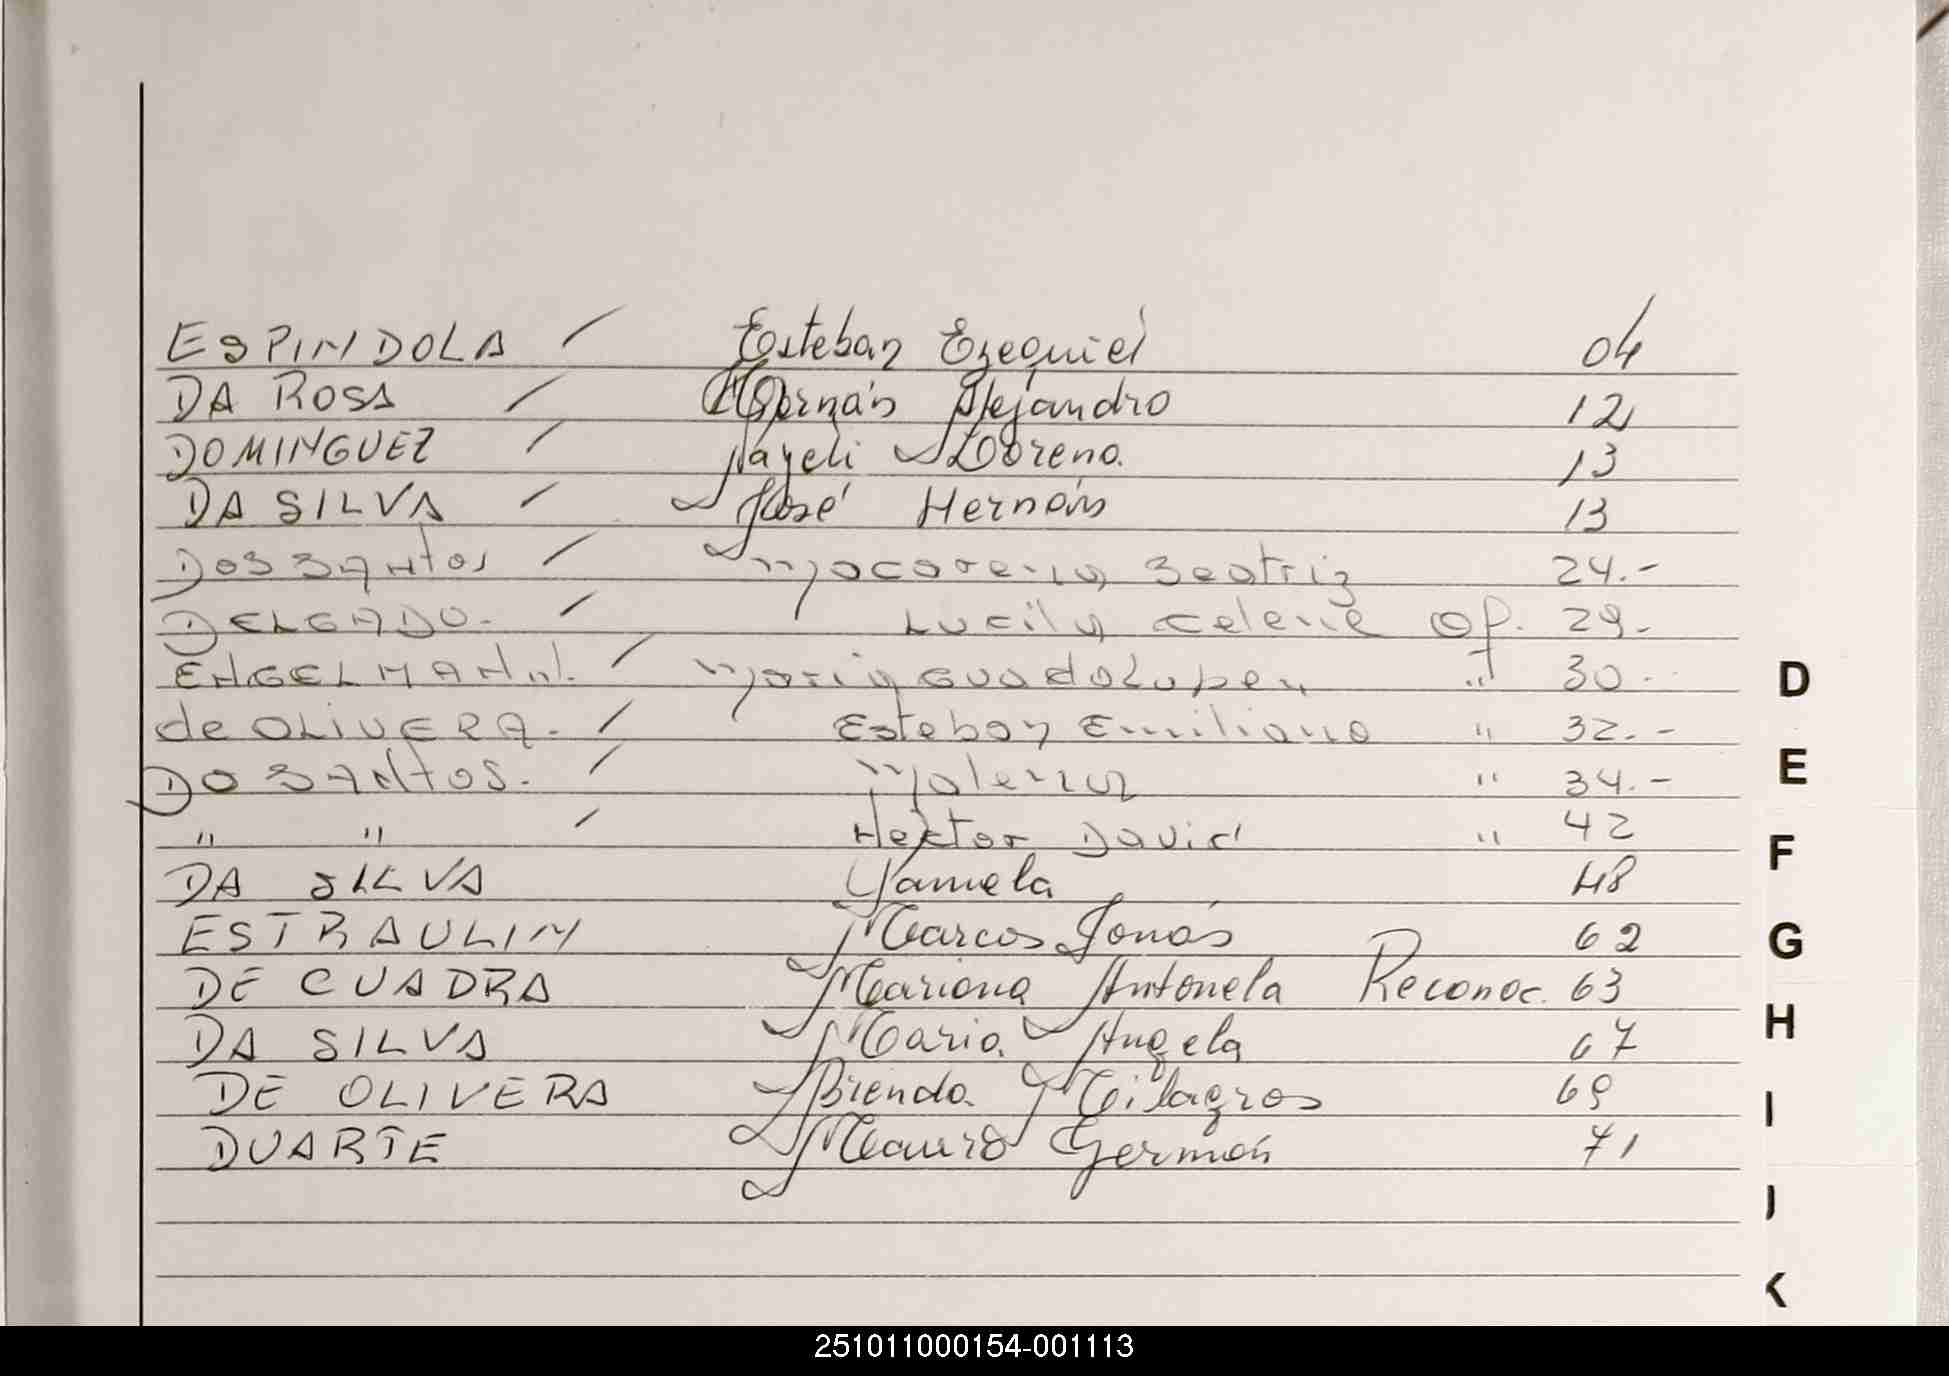 ESPINDOLA / Esteban Ezequiel 04
DA ROSA / Hernán Alejandro 12
DOMINGUEZ / Nayeli Lorena 13
DA SILVA / José Hernán 13
DOS SANtos / Macarena Beatriz 24.-
DELGADO. / Lucila Celene Of. 29.
ENGELMANN. / Maria Guadalupe " 30.
de OLIVERA. / Esteban Emiliano " 32.-
DO SANtOS. / Malena " 34.-
" " / Hector David " 42
DA SILVA Yamela 48
ESTRAULIN Marcos Jonás 62
DE CUADRA Mariana Antonela Reconoc. 63
DA SILVA Maria Angela 67
DE OLIVERA Brenda Milagros 69
DUARTE Mauro Germán 71
D
E
F
G
H
I
J
K
251011000154-001113